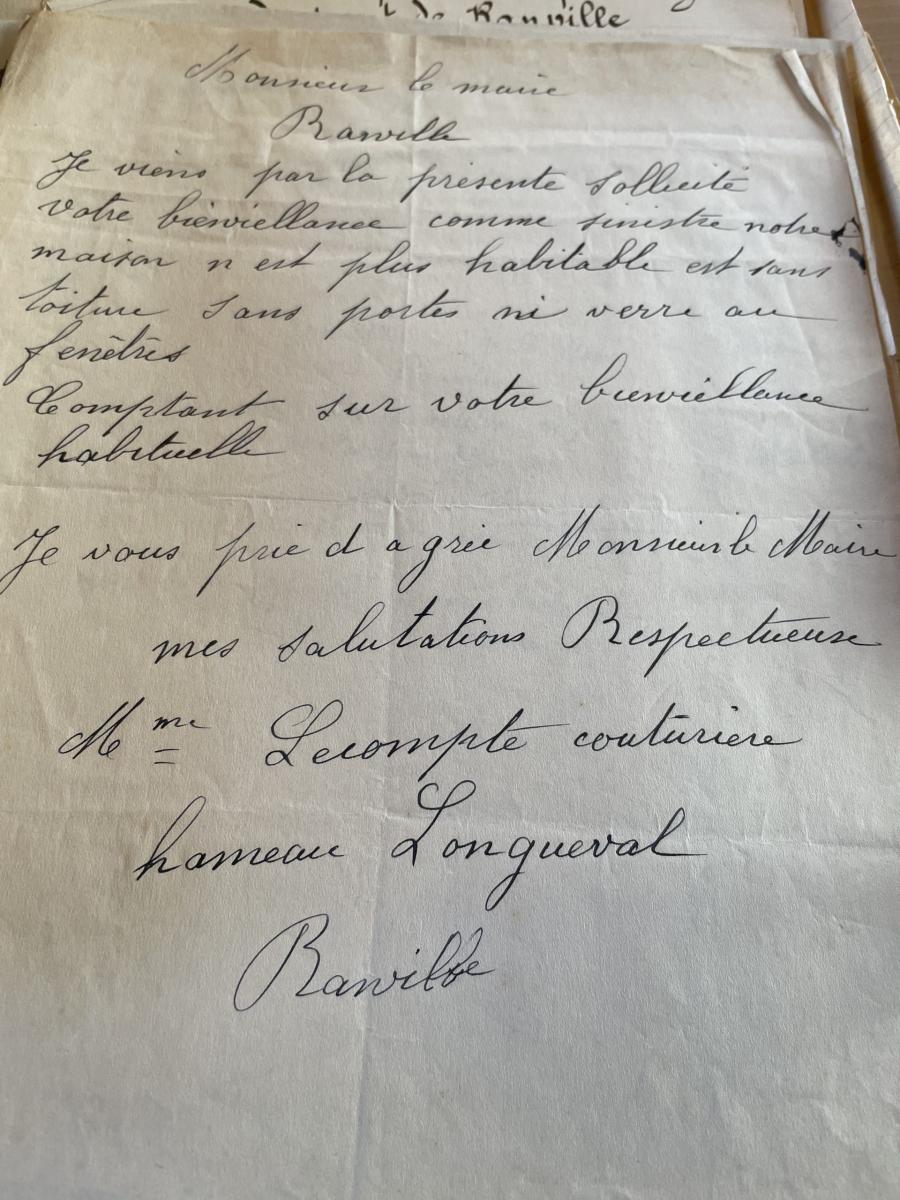 de Ranville
Monsieur le maire
Ranville
Je viens par la présente sollicité
votre bienviellance comme sinistre notre
maison n est plus habitable est sans
toiture sans portes ni verre au
fenêtrès
Comptant sur votre bienviellance
habituelle
Je vous prie d agrée Monsieur le Maire
mes salutations Respectueuse
Mme Lecompte couturière
hameau Longueval
Ranville